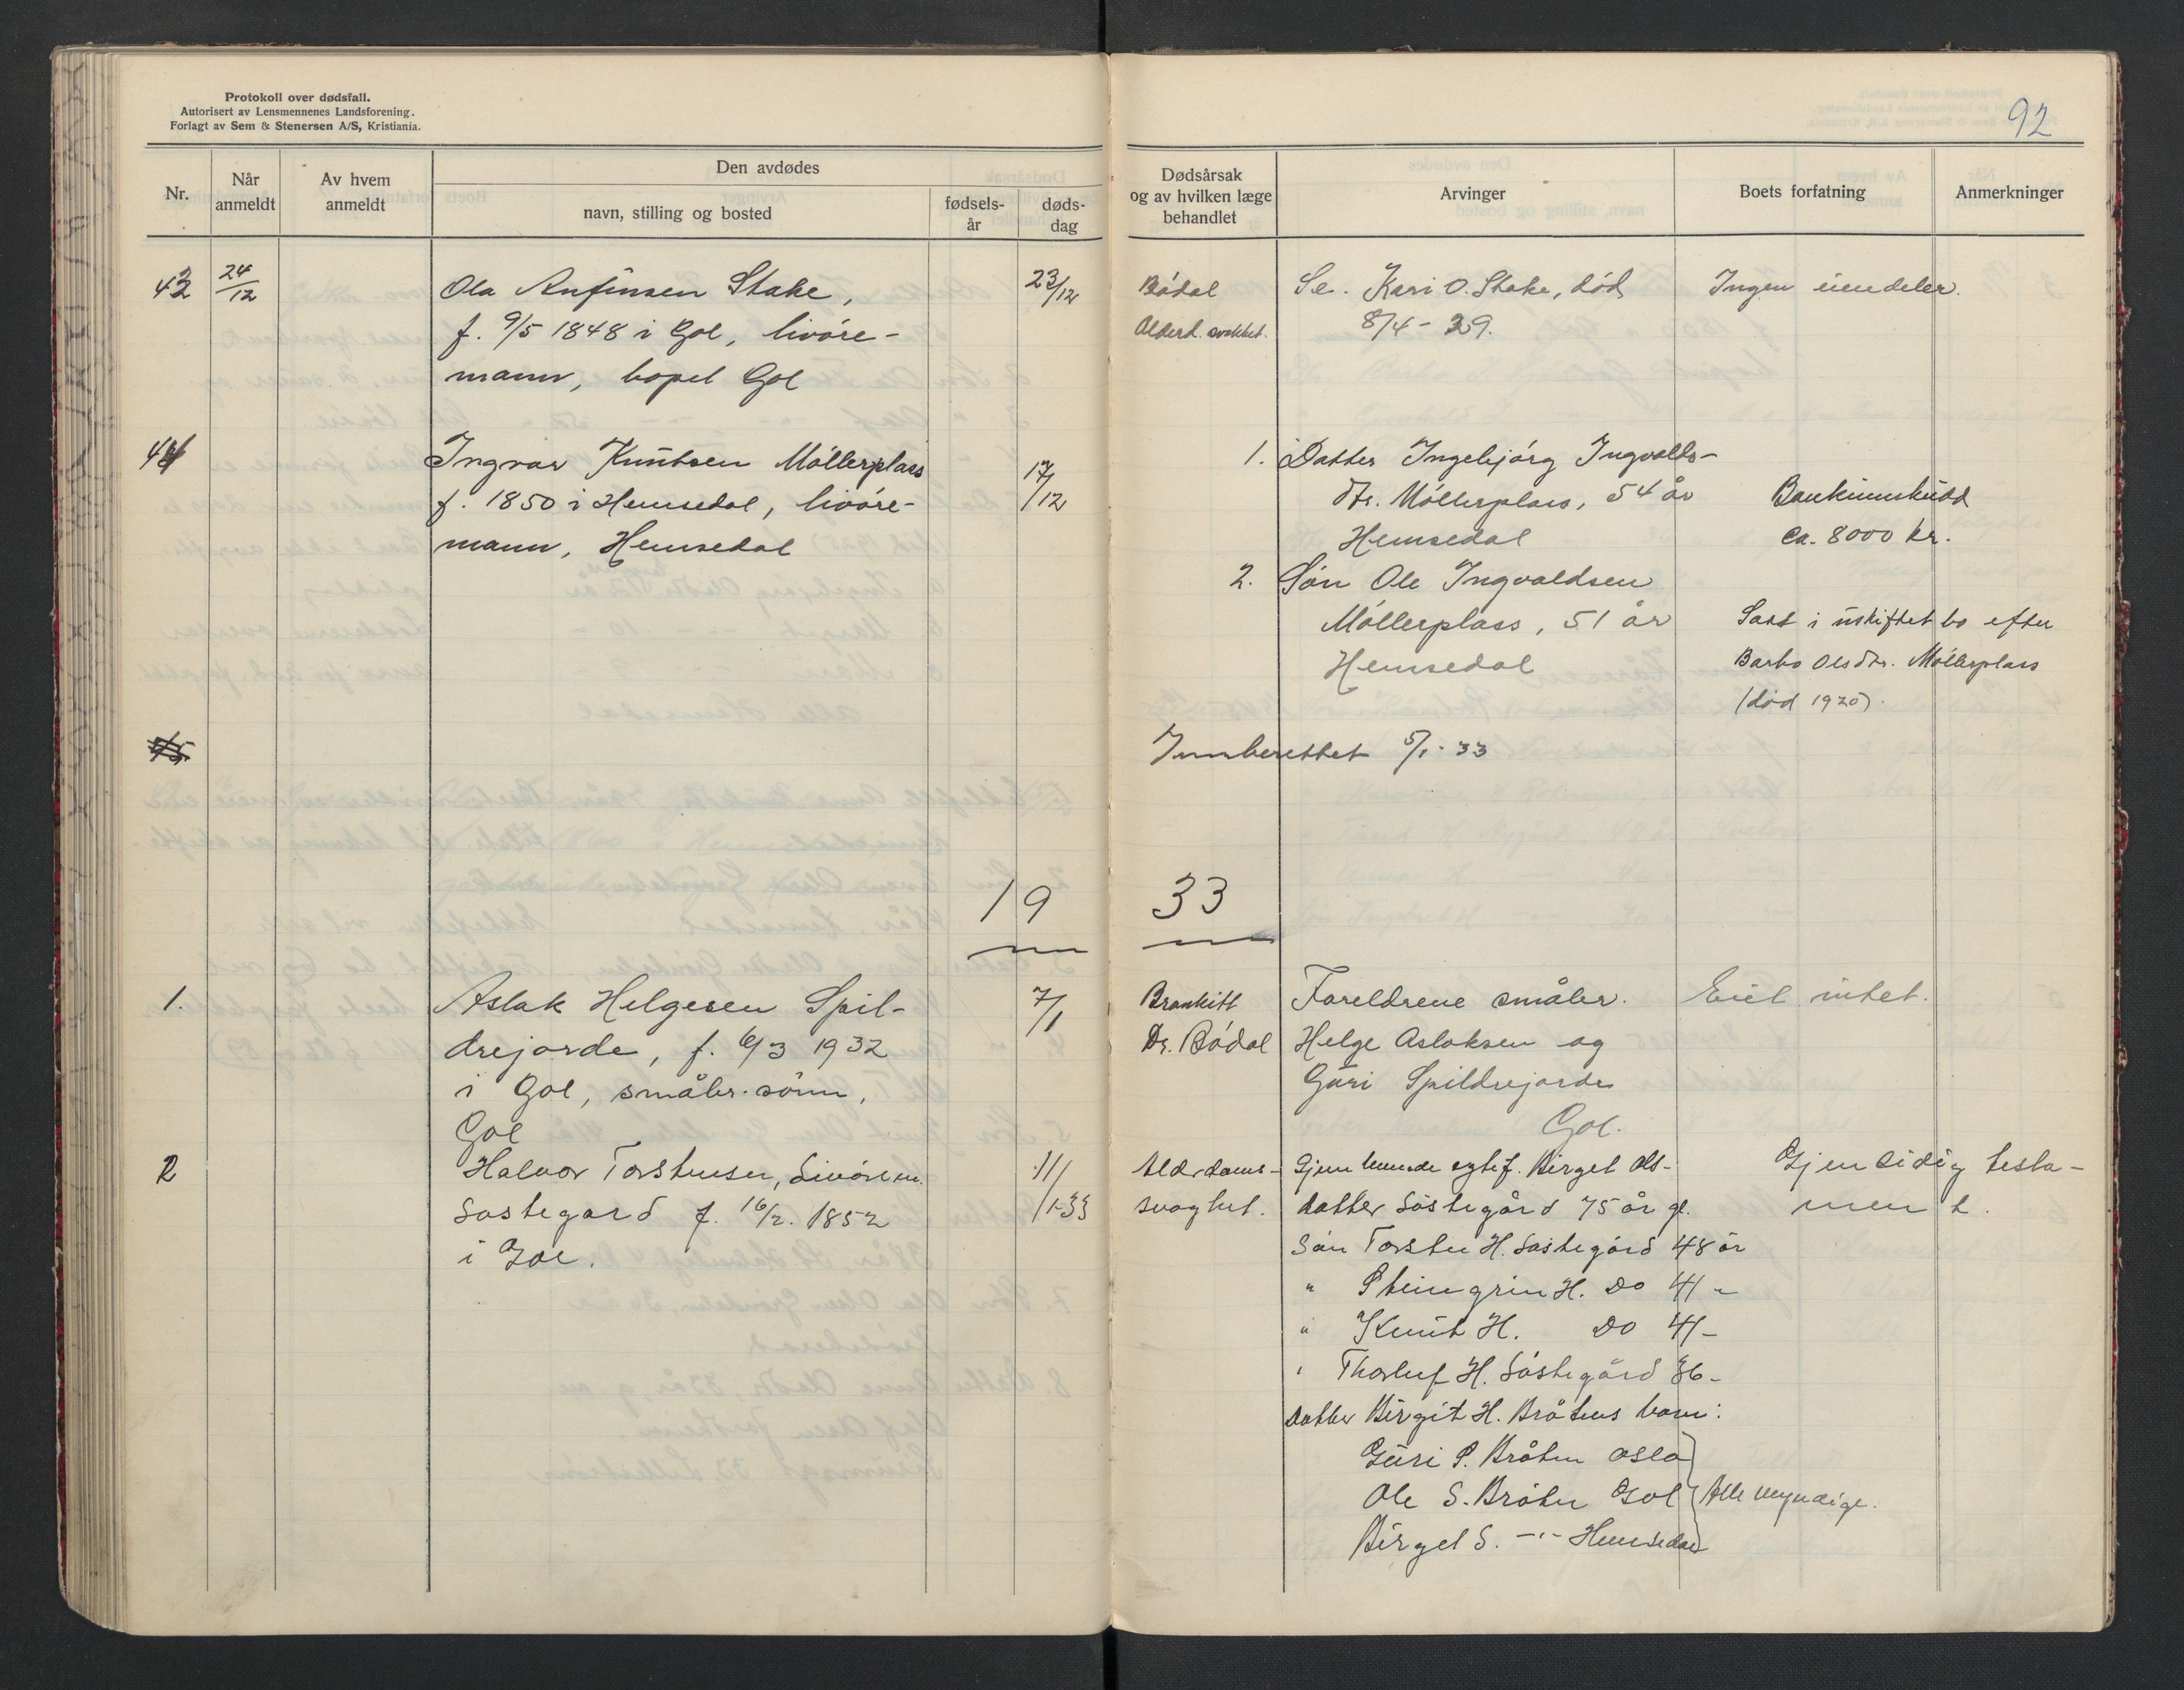 Protokoll over dødsfall.
Autorisert av Lensmennenes Landsforening.
Forlagt av Sem & Stenersen A/S, Kristiania.
92
Nr.
Når anmeldt
Av hvem anmeldt
Den avdødes
navn, stilling og bosted
fødsels-år
døds-dag
Dødsårsak og av hvilken læge behandlet
Arvinger
Boets forfatning
Anmerkninger
43 24/12
Ola Anfinsen Stake,
f. 9/5 1848 i Gol, livøre-
mann, bopel Gol
23/12
Bødal
Alderd. svakhet.
Se. Kari O. Stake, død
8/4 - 29.
Ingen eiendeler.
44
Ingvar Knutsen Møllerplass
f. 1850 i Hemsedal, livøre-
mann, Hemsedal
17/12
1. Datter Ingebjørg Ingvalds-
dtr. Møllerplass, 54 år
Hemsedal
2. Søn Ole Ingvaldsen
Møllerplass, 51 år
Hemsedal
Bankinnskudd
ca. 8000 kr.
Satt i uskiftet bo efter
Barbo Olsdtr. Møllerplass
(død 1920).
45
Innberettet 5/1-33
19 33
1.
Aslak Helgesen Spil-
drejorde, f. 6/3 1932
i Gol, småbr. sønn,
Gol
7/1
Bronkitt
Dr. Bødal
Foreldrene småbr.
Helge Aslaksen og
Guri Spildrejorde
Gol.
Eiet intet.
2
Halvor Torstensen, Livørem.
Søstegard f. 16/2. 1852
i Gol.
11/1-33
Alderdoms-
svaghet.
Gjenlevende egtef. Birget Ols-
datter Søstegård 75 år gl.
Søn Torsten H. Søstegård 48 år
" Steingrim H. Do 41 "
" Knut H. Do 41 -
" Thorleif H. Søstegård 36 -
Datter Birgit H. Bråtens barn:
Guri S. Bråten Oslo
Ole S. Bråten Gol
Birget S. -"- Hemsedal
Alle myndige.
Gjensidig testa-
ment.